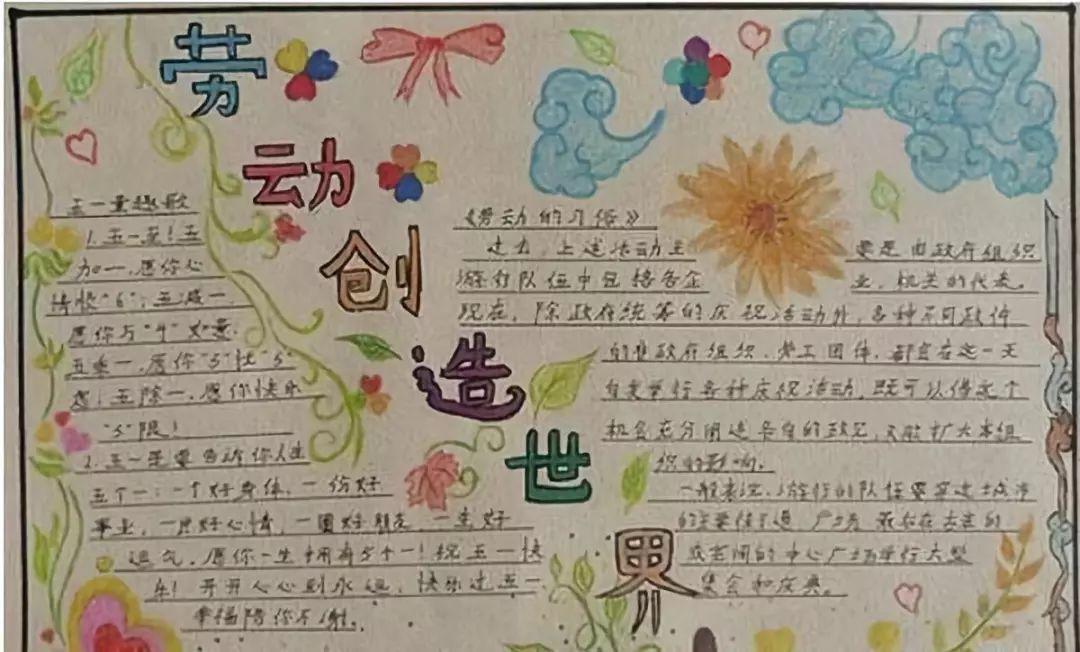 劳动创造世界
五一童趣歌
1.五一至!五
加一,愿你心
情很"6";五减一,
愿你与"4"欢喜
五乘一,愿你"5"快"5"
意;五除一,愿你快乐
"5"限!
2.五一是要告诉你人生
五个一:一个好身体,一份好
事业,一片好心情,一圈好朋友,一生好
运气,愿你一生拥有5个一!祝五一快
乐!开开心心到永远,快乐过五一
幸福陪你不谢。
《劳动的习俗》
过去,上述活动主要是由政府组织
游行队伍中包括各企业,机关的代表。
现在,除政府统筹的庆祝活动外,各种不同政件
的非政府组织,劳工团体,都会在这一天
自发举行各种庆祝活动,既可以借这个
机会充分阐述各自的政见,又能扩大本组
织的影响。
一般来说,游行的队伍要穿过城市
的主要街道 广场 最后在大芒的
或空间的中心广场举行大型
集会和庆典。